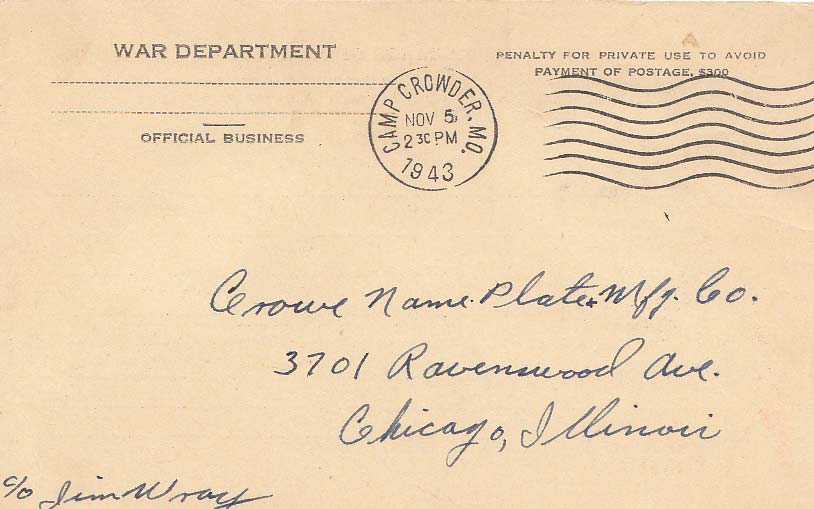 WAR DEPARTMENT
OFFICIAL BUSINESS
PENALTY FOR PRIVATE USE TO AVOID
PAYMENT OF POSTAGE, $300
CAMP CROWDER, MO.
NOV 5
2 30 PM
1943
Crowe Name Plate & Mfg. Co.
3701 Ravenswood Ave.
Chicago, Illinois
c/o Jim Wray